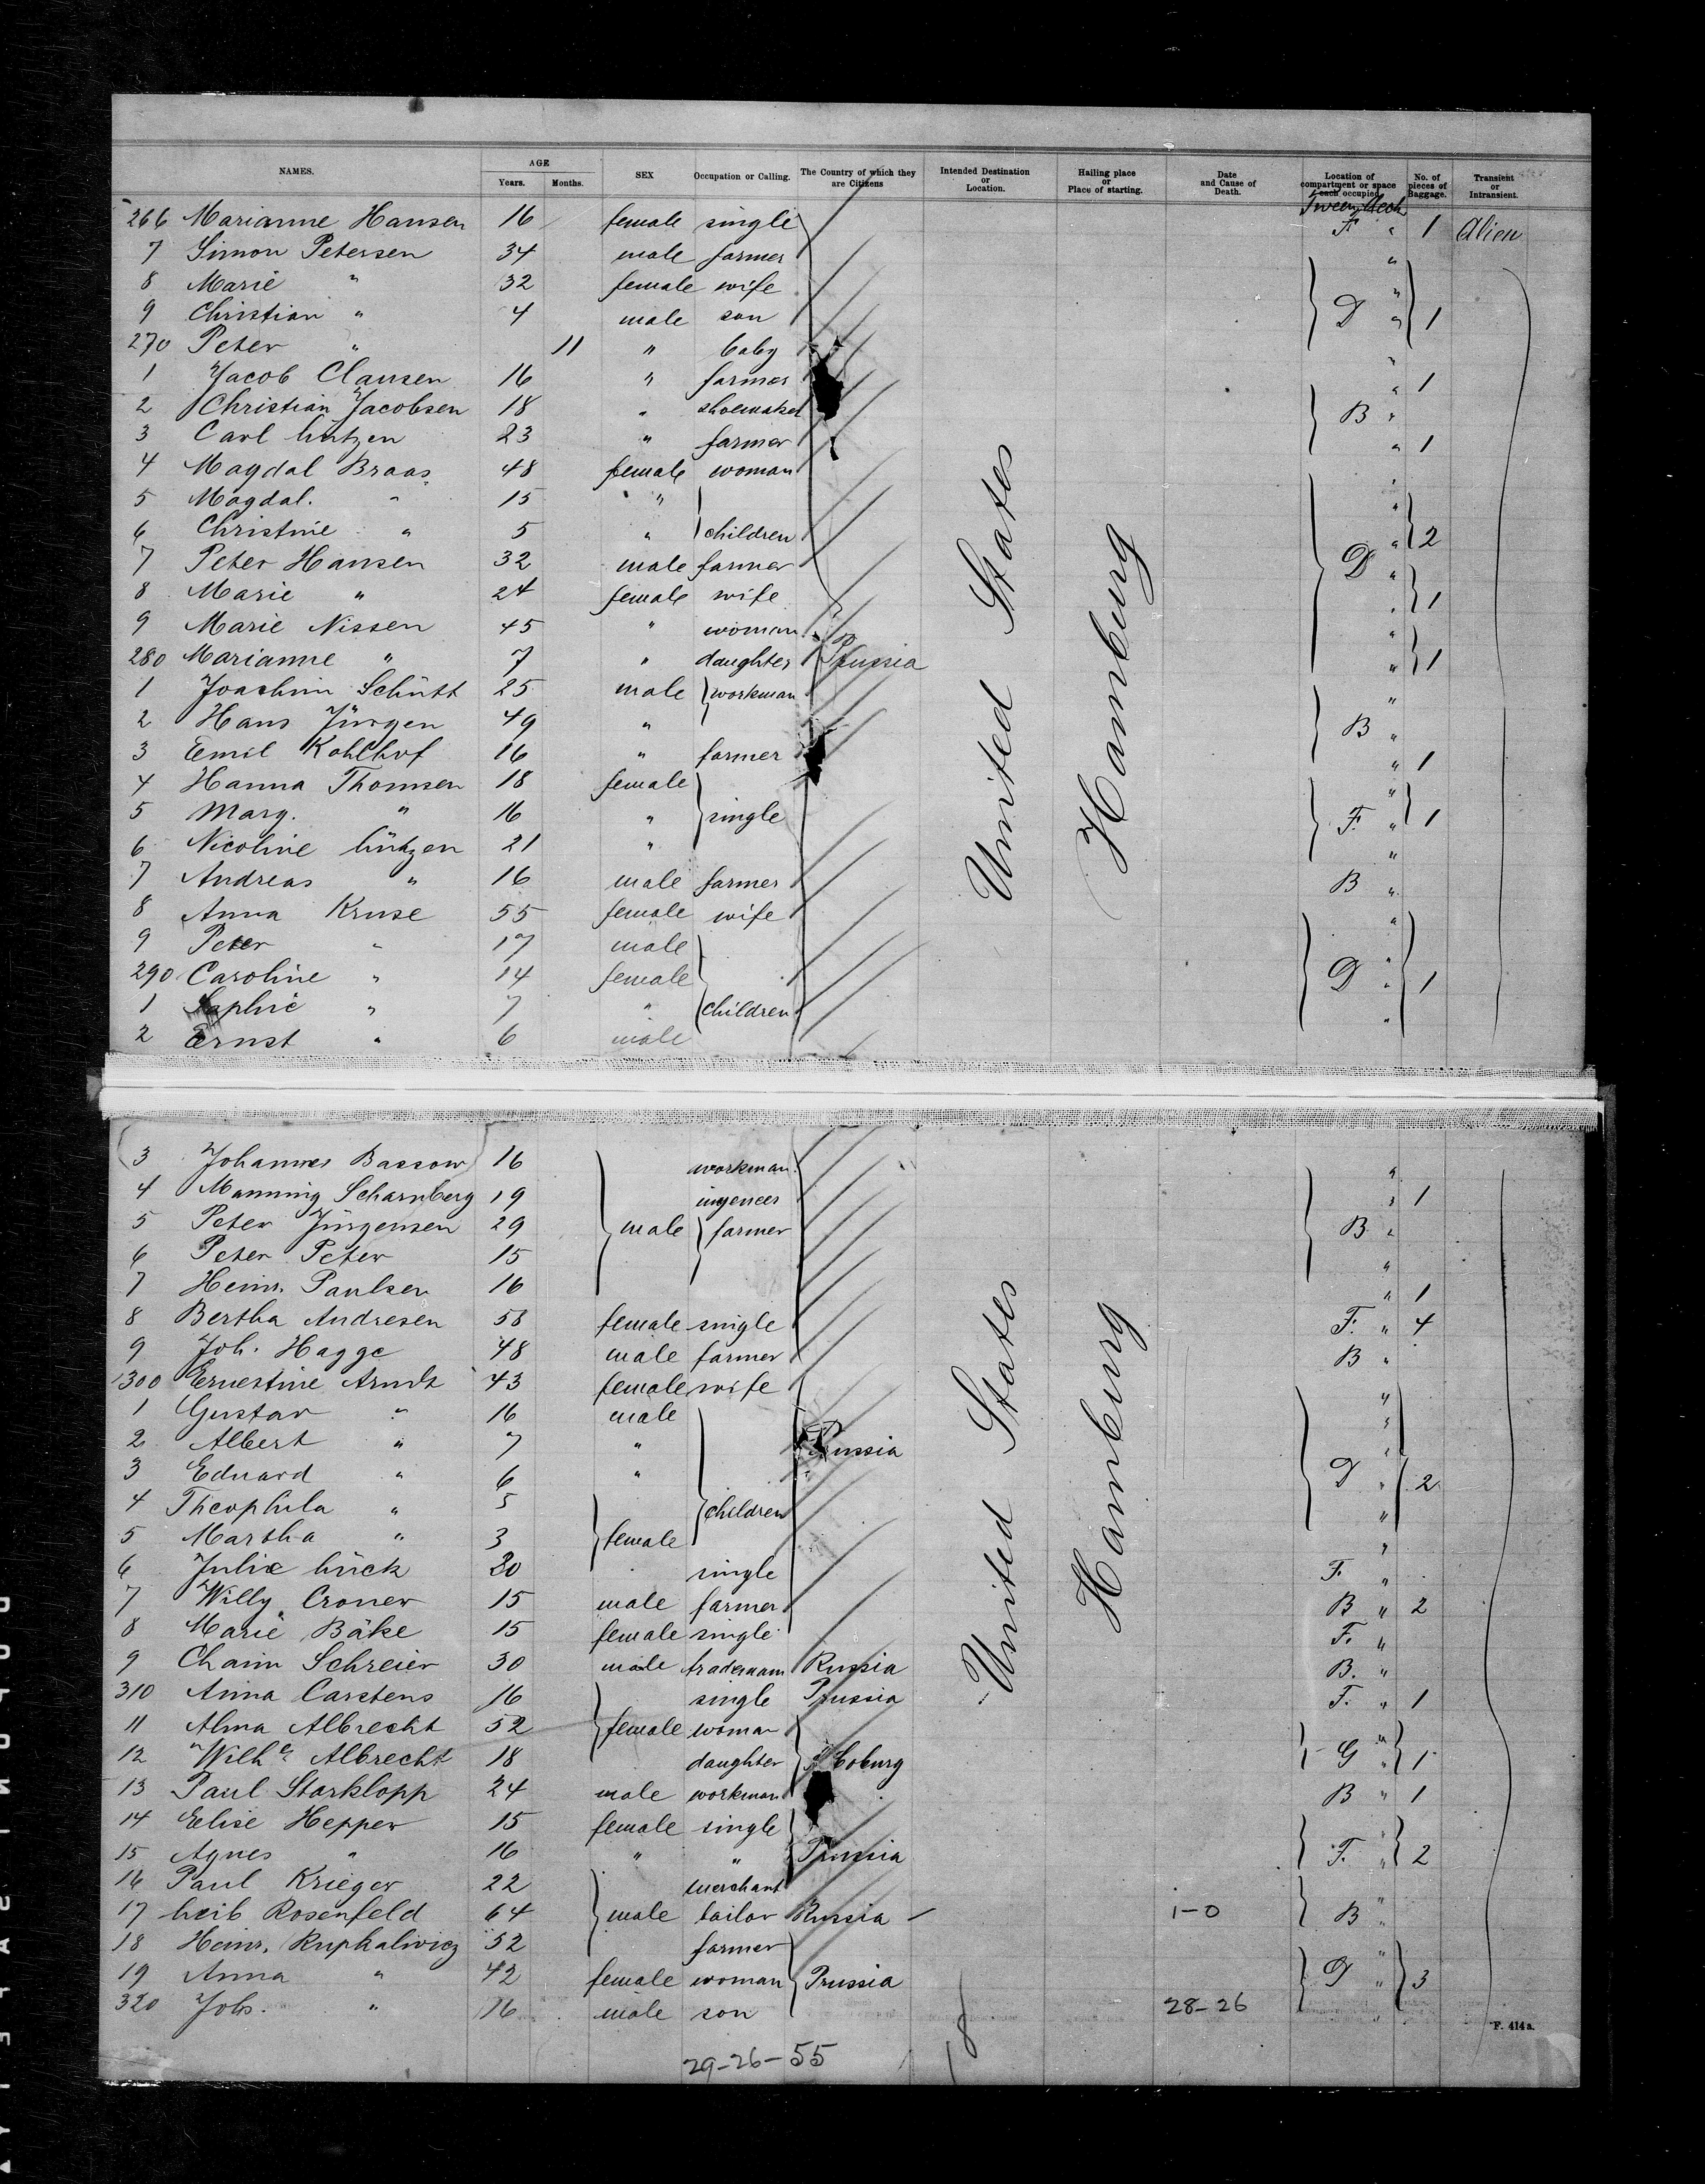 NAMES. AGE Years. Months. SEX Occupation or Calling. The Country of which they are Citizens Intended Destination or Location. Hailing place or Place of starting. Date and Cause of Death. Location of compartment or space each occupied No. of pieces of Baggage. Transient or Intransient.
Tween deck
266 Marianne Hansen 16 female single F. " 1 Alien
7 Simon Petersen 34 male farmer "
8 Marie " 32 female wife "
9 Christian " 4 male son D " 1
270 Peter " 11 " baby
1 Jacob Clausen 16 " farmer " 1
2 Christian Jacobsen 18 " shoemaker B "
3 Carl Lützen 23 " farmer " 1
4 Magdal Braas 48 female woman "
5 Magdal. " 15 " "
6 Christine " 5 " children " 2
7 Peter Hansen 32 male farmer D "
8 Marie " 24 female wife " 1
9 Marie Nissen 45 " woman "
280 Marianne " 7 " daughter Prussia " 1
1 Joachim Schütt 25 male workman "
2 Hans Jürgen 49 " B "
3 Emil Kohlhof 16 " farmer " 1
4 Hanna Thomsen 18 female "
5 Marg. " 16 " single F. " 1
6 Nicoline Lützen 21 " "
7 Andreas " 16 male farmer B "
8 Anna Kruse 55 female wife "
9 Peter " 17 male "
290 Caroline " 14 female D " 1
1 Sophie " 7 " children "
2 Ernst " 6 male
United States
Hamburg
3 Johannes Bassow 16 workman "
4 Manning Scharnberg 19 ingeneer " 1
5 Peter Jürgensen 29 male farmer B "
6 Peter Peter 15 "
7 Heinr. Paulsen 16 " 1
8 Bertha Andresen 58 female single F. " 4
9 Joh. Hagge 48 male farmer B "
1300 Ernestine Arndt 43 female wife "
1 Gustav " 16 male "
2 Albert " 7 " Russia "
3 Eduard " 6 " D " 2
4 Theophila " 5 children "
5 Martha " 3 female "
6 Julie Lück 20 single F. "
7 Willy Croner 15 male farmer B " 2
8 Marie Bäke 15 female single F. "
9 Chaim Schreier 30 male tradesman Russia B. "
310 Anna Carstens 16 single Prussia F. " 1
11 Alma Albrecht 52 female woman "
12 Wilhe Albrecht 18 daughter Coburg G " 1
13 Paul Starklopp 24 male workman B " 1
14 Elise Hepper 15 female single "
15 Agnes " 16 " " Prussia F. " 2
16 Paul Krieger 22 merchant "
17 Leib Rosenfeld 64 male tailor Russia 1-0 B "
18 Heinr. Rupkalwicz 52 farmer "
19 Anna " 42 female woman Prussia D " 3
320 Johs. " 16 male son 28-26 "
United States
Hamburg
F. 414a.
29-26-55